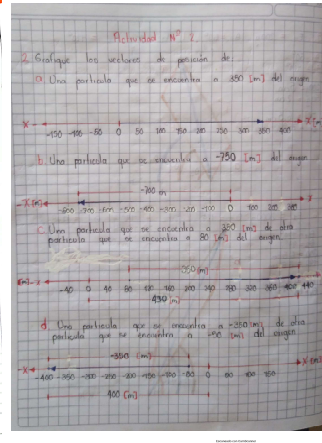 Actividad Nº 2
2. Grafique los vectores de posición de:
a. Una partícula que se encuentra a 350 [m] del origen
-150 -100 -50 0 50 100 150 200 250 300 350 400
b. Una partícula que se encuentra a -750 [m] del origen
-700 m
-X [m]
-800 -700 -600 -500 -400 -300 -200 -100 0 100 200
c. Una partícula que se encuentra a 350 [m] de otra
partícula que se encuentra a 80 [m] del origen
350 [m]
[m] -x -40 0 40 80
400 440
430 [m]
d. Una partícula que se encuentra a -350 [m] de otra
partícula que se encuentra a -50 [m] del origen
-350 [m]
-X
-400 -350 -300 -250 -200 -150 -100 -50 0 50 100 150
400 [m]